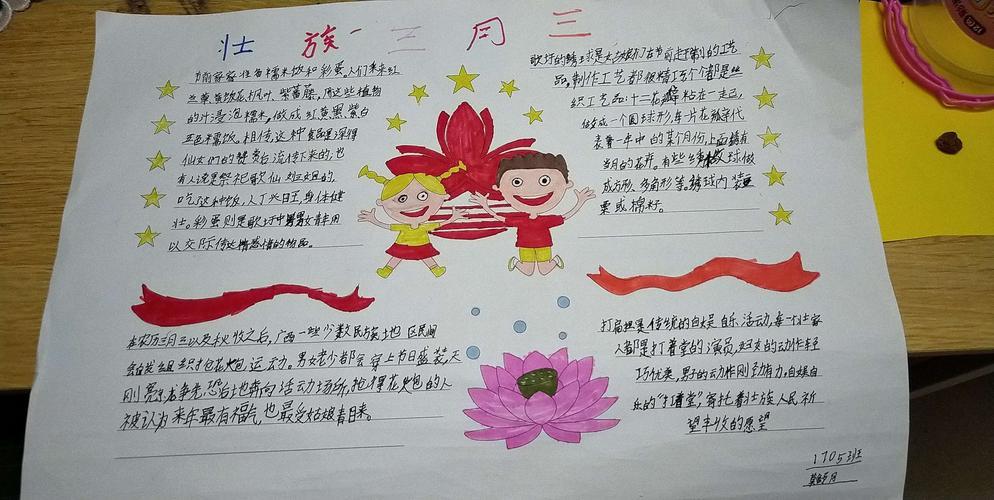 壮族三周三
节前家家准备糯米饭和彩蛋。人们采来红
兰草、黄饭花、枫叶、紫蕃藤，用这些植物
的汁浸泡糯米，做成红、黄、黑、紫、白
五色糯饭。相传，这种食品深得
仙女们的赞赏后流传下来的；也
有人说是祭祀歌仙
吃这种饭，人丁兴旺，身体健
壮。彩蛋则是歌圩中男女青年用
以交际传达情感的物品。
歌圩的绣球是
品，制作工艺都很精巧，个个都是丝
织工艺品，十二花瓣粘在一起，
做成一个圆球形，每片花瓣代
表着一年中的某个月份，上面绣有
当月的花卉。有些绣球做
成方形、多角形等。绣球内装豆
粟或棉籽。
在农历三月三以及秋收之后，广西一些少数民族地区民间
自发组织抢花炮运动。男女老少都会穿上节日盛装，天
刚亮就争先恐后地朝向活动场所，抢得花炮的人
被认为来年最有福气，也最受姑娘青目来。
打扁担是传统的自娱自乐活动，每一个壮家
人都是打着堂的演员，妇女的动作轻
巧优美，男子的动作刚劲有力，自娱自
乐的"打着堂"，寄托着壮族人民祈
望丰收的愿望
1705班